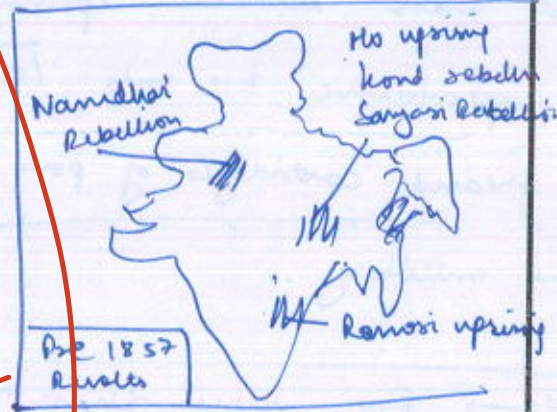 Namdhari
Rebellion
Ho uprising
Kond rebelln
Sanyasi Rebellion
Ramosi uprising
Pre 1857
Revolts